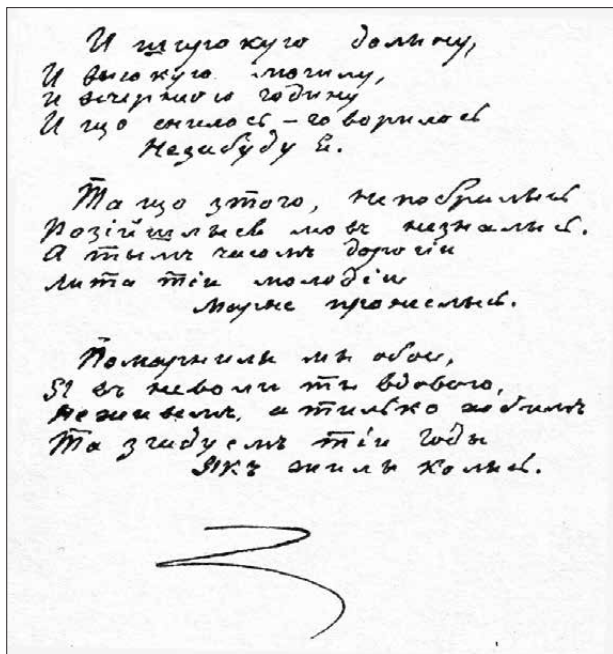 И шырокую долыну,
И высокую могилу,
И вечернюю годину
И що снилось – говорилось
Незабуду Я.
Та що зтого, непобралысь
Розійшлысь мовъ незналысь.
А тымъ часомъ дорогіи
Лита тіи молодіи
Марне пронеслысь.
Помарнилы мы обое,
Я въ неволи ты вдовою,
Неживемъ, а тилько ходимъ
Та згадуемъ тіи годы
Якъ жилы колысь.